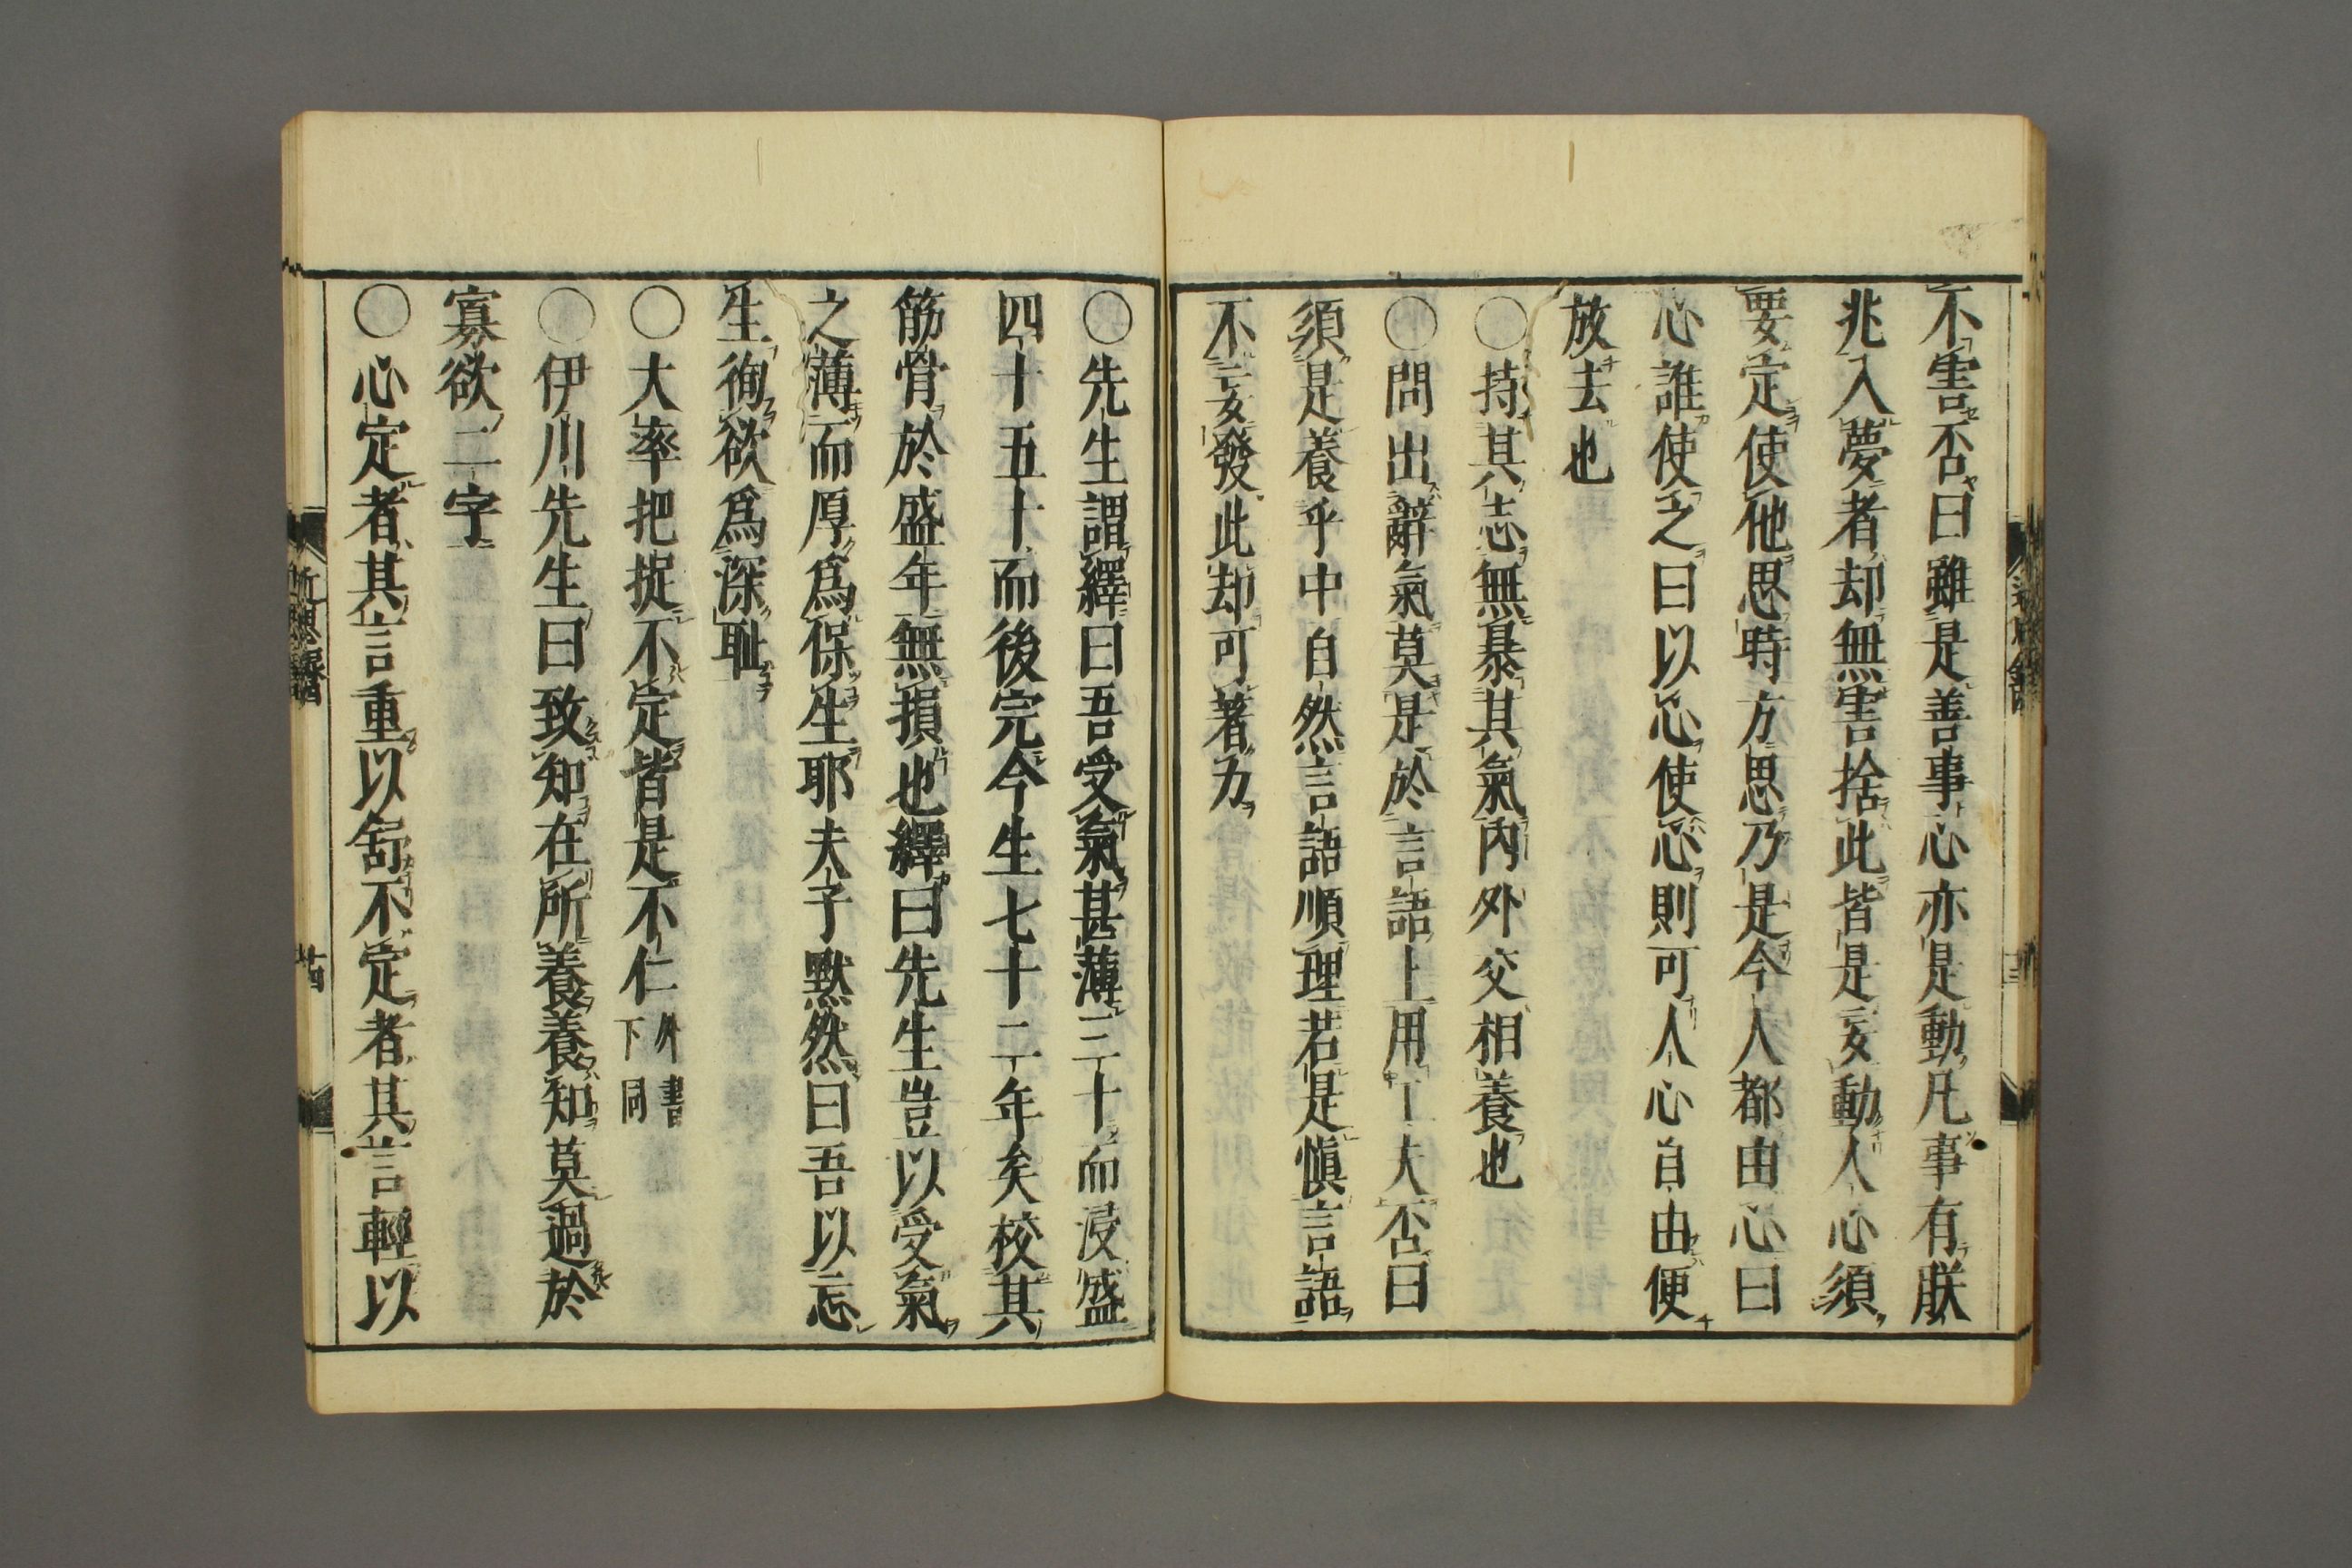 不害否曰雖是善事心亦是動凡事有朕
兆入夢者却無害捨此皆是妄動人心須
要定使他思時方思乃是今人都由心曰
心誰使之曰以心使心則可人心自由便
放去也
○持其志無暴其氣內外交相養也
○問出辭氣莫是於言語上用工夫否曰
須是養乎中自然言語順理若是愼言語
不妄發此却可著力
○先生謂繹曰吾受氣甚薄三十而浸盛
四十五十而後完今生七十二年矣校其
筋骨於盛年無損也繹曰先生豈以受氣
之薄而厚爲保生耶夫子默然曰吾以忘
生徇欲爲深耻
○大率把捉不定皆是不仁 外書下同
○伊川先生曰致知在所養養知莫過於
寡欲二字
○心定者其言重以舒不定者其言輕以
近思錄四
廿四